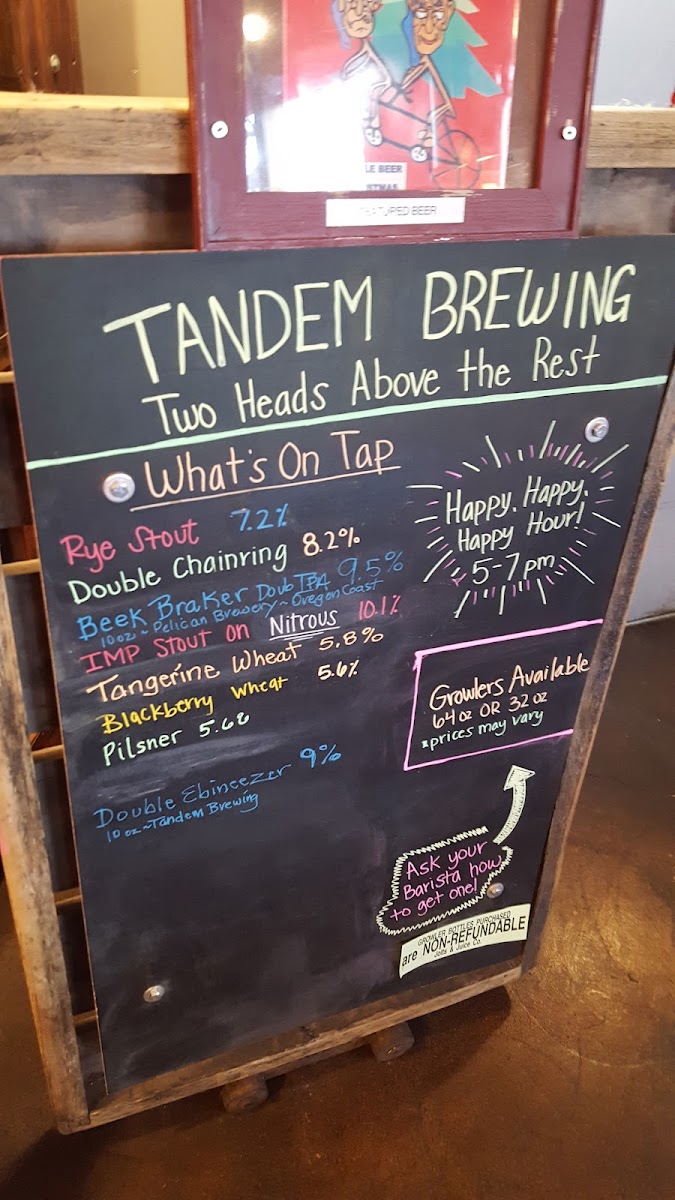 LE BEER
STMAS
FEATURED BEER
TANDEM BREWING
Two Heads Above the Rest
What's On Tap
Rye Stout 7.2%
Double Chainring 8.2%
Beek Braker Doub IPA 9.5%
10 oz ~ Pelican Brewery ~ Oregon Coast
IMP Stout on Nitrous 10.1%
Tangerine Wheat 5.8%
Blackberry Wheat 5.6%
Pilsner 5.6%
Double Ebineezer 9%
10 oz ~ Tandem Brewing
Happy, Happy,
Happy Hour!
5-7pm
Growlers Available
64 oz OR 32 oz
*prices may vary
Ask your
Barista how
to get one!
GROWLER BOTTLES PURCHASED
are NON-REFUNDABLE
Jolts & Juice Co.